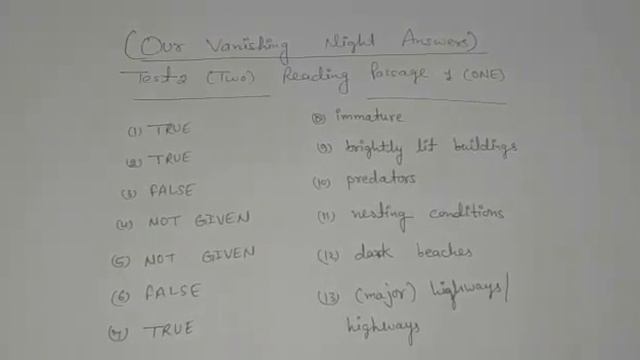 (Our Vanishing Night Answers)
Test 2 (Two) Reading Passage 1 (ONE)
(1) TRUE
(2) TRUE
(3) FALSE
(4) NOT GIVEN
(5) NOT GIVEN
(6) FALSE
(7) TRUE
(8) immature
(9) brightly lit buildings
(10) predators
(11) nesting conditions
(12) dark beaches
(13) (major) highways/
highways